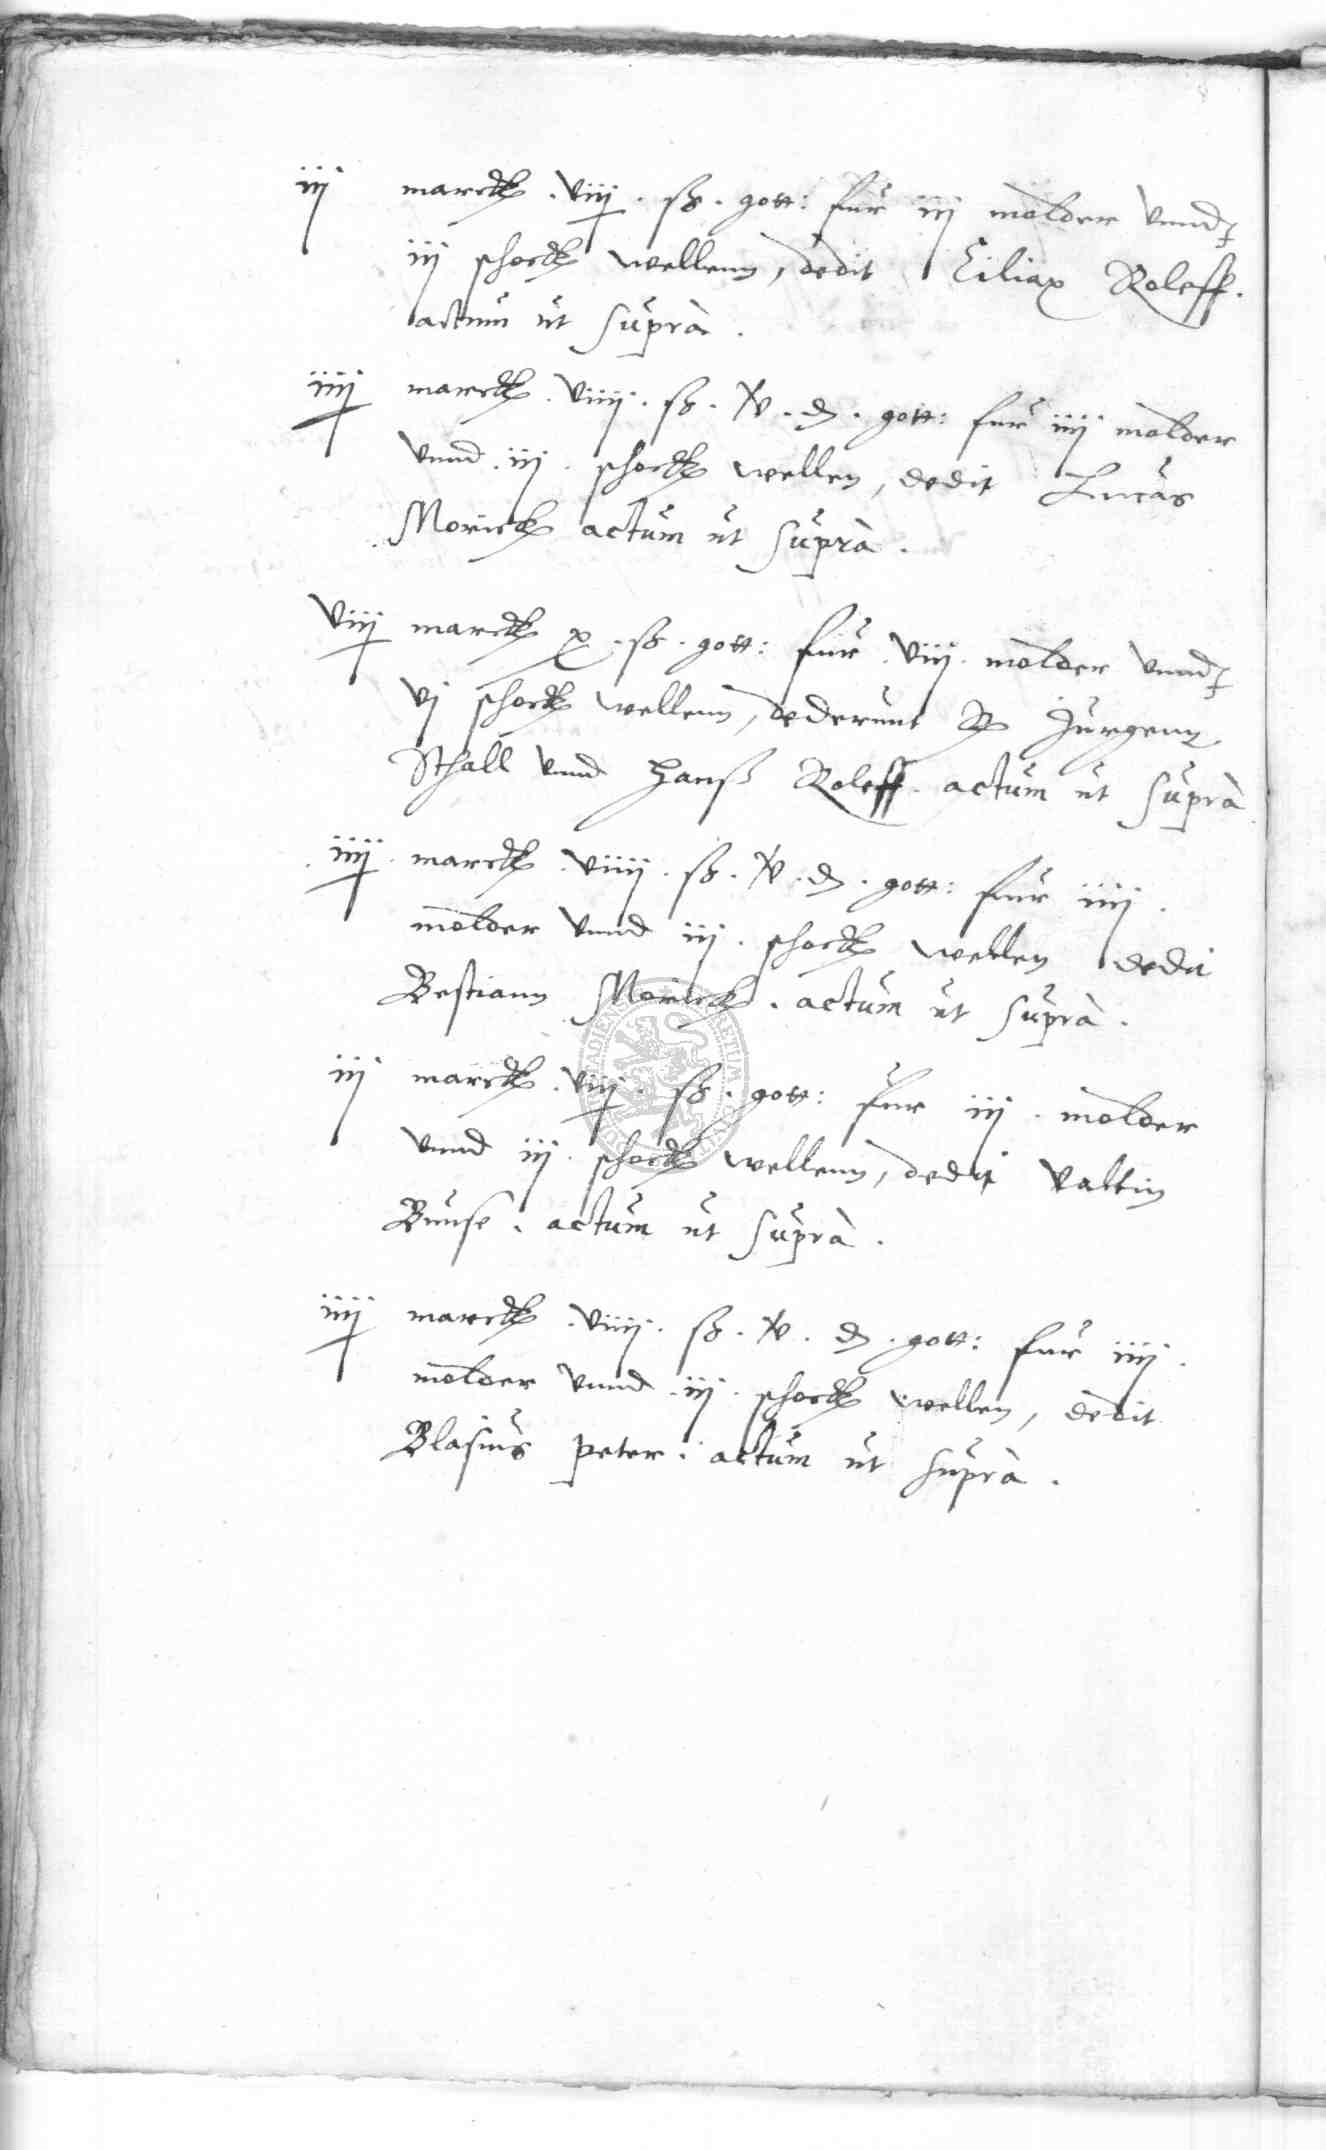 iij marckh . viij . ß . gott: fur iij molder vnnd
iij schockh wellenn, dedit Ciliax Roleff.
actum ut supra .
iiij marckh . viiij . ß . v . d . gott: fur iiij molder
vnnd . iij . schockh wellen, dedit Lucas
Morickh actum ut supra .
viij marckh x . ß . gott: fur . viij . molder vnnd
vj schockh wellenn, dederunt Jurgenn
Schall vnnd Hanß Roleff . actum ut supra
. iiij . marckh . viiij . ß . v . d . gott: fur iiij .
molder vnnd iij . schockh wellen dedit
Bestiann Morickh . actum ut supra .
iij marckh . viij . ß . gott: fur iij . molder
vnnd iij . schockh wellenn, dedit Valtin
Bunse . actum ut supra .
iiij marckh . viiij . ß . v . d . gott: fur iiij .
molder vnnd . iij . schockh wellen, dedit
Blasius peter . actum ut supra .